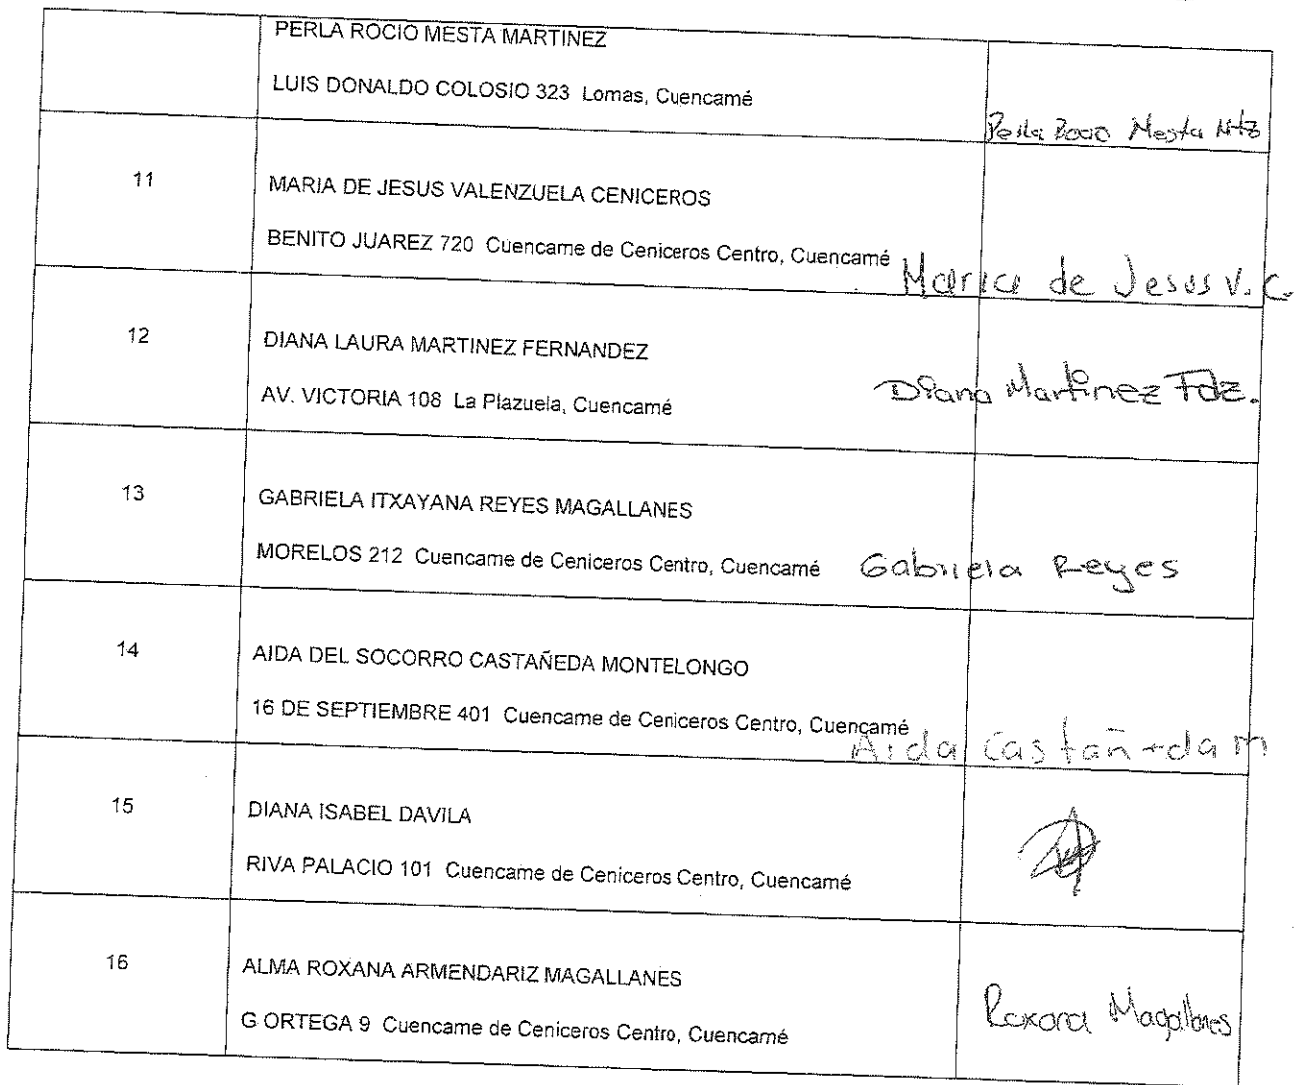 PERLA ROCIO MESTA MARTINEZ
LUIS DONALDO COLOSIO 323 Lomas, Cuencamé
Perla Rocio Mesta Mtz
11
MARIA DE JESUS VALENZUELA CENICEROS
BENITO JUAREZ 720 Cuencame de Ceniceros Centro, Cuencamé
Maria de Jesus V. C.
12
DIANA LAURA MARTINEZ FERNANDEZ
AV. VICTORIA 108 La Plazuela, Cuencamé
Diana Martinez Fdz.
13
GABRIELA ITXAYANA REYES MAGALLANES
MORELOS 212 Cuencame de Ceniceros Centro, Cuencamé
Gabriela Reyes
14
AIDA DEL SOCORRO CASTAÑEDA MONTELONGO
16 DE SEPTIEMBRE 401 Cuencame de Ceniceros Centro, Cuencamé
Aida Castañeda M
15
DIANA ISABEL DAVILA
RIVA PALACIO 101 Cuencame de Ceniceros Centro, Cuencamé
16
ALMA ROXANA ARMENDARIZ MAGALLANES
G ORTEGA 9 Cuencame de Ceniceros Centro, Cuencamé
Roxana Magallanes